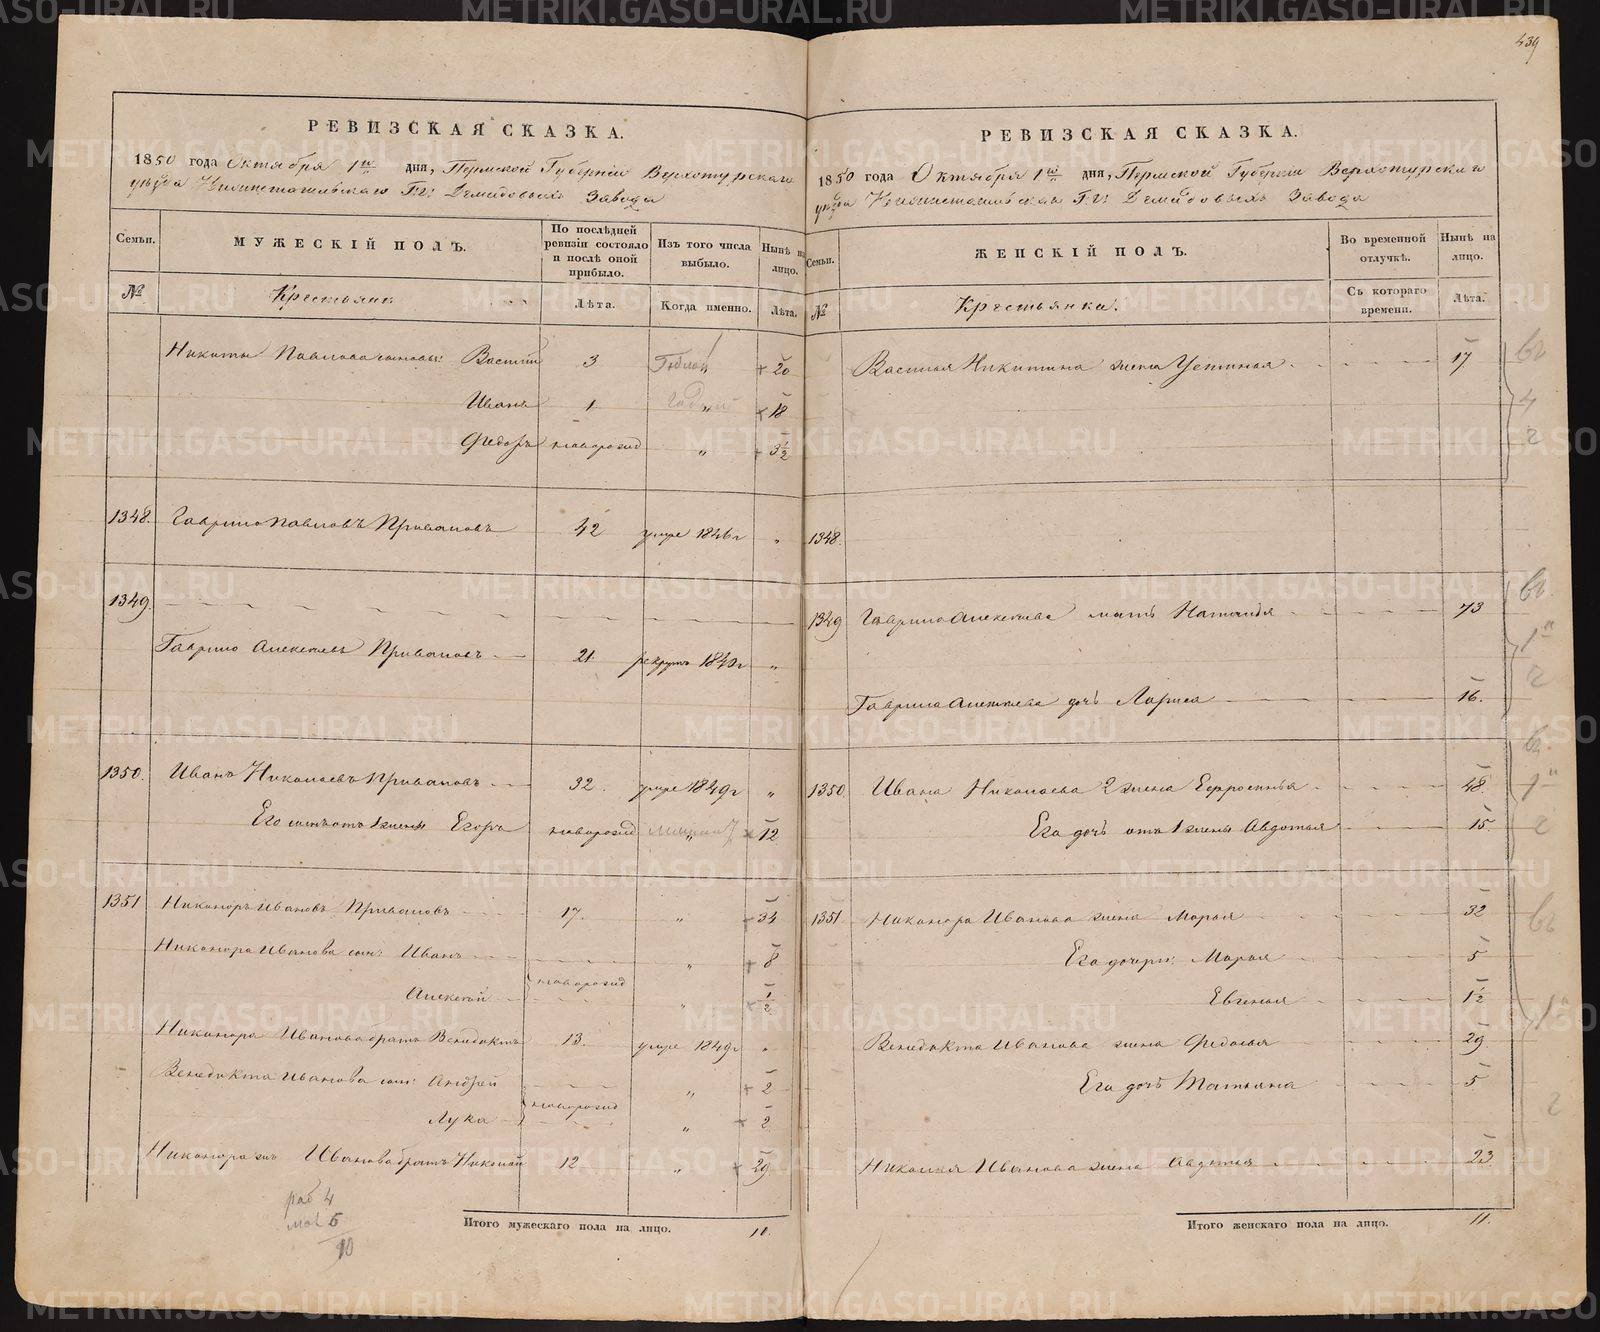 439
РЕВИЗСКАЯ СКАЗКА.
1850 года Октября 1го дня, Пермской Губерніи Верхотурскаго
уѣзда Нижнетагильскаго Гг: Демидовыхъ Завода
Семьи. МУЖЕСКІЙ ПОЛЪ. По послѣдней ревизіи состояло и послѣ оной прибыло. Изъ того числа выбыло. Нынѣ на лицо.
№ Крестьяне Лѣта. Когда именно. Лѣта.
Никиты Павлова сыновья: Василій 3 20
Иванъ 1 " 18
Федоръ новорожд " 3½
1348. Гаврило Павловъ Приваловъ 42 умре 1846г "
1349.
Гаврило Алексѣевъ Приваловъ 21. рекрутъ 1840г "
1350. Иванъ Николаевъ Приваловъ 32. умре 1849г "
Его сынъ отъ 1 жены Егоръ новорожд " 12
1351 Никаноръ Ивановъ Приваловъ 17. " 34
Никанора Иванова сын: Иванъ " 8
новорожд
Алексѣй " ½
Никанора Иванова братъ Венедиктъ 13. умре 1849г "
Венедикта Иванова сын: Андрей " 2
новорожд
Лука " 2
Никанора же Иванова братъ Николай 12 " 29
раб 4
мал 6
10
Итого мужескаго пола на лицо. 10.
РЕВИЗСКАЯ СКАЗКА.
1850 года Октября 1го дня, Пермской Губерніи Верхотурскаго
уѣзда Нижнетагильскаго Гг: Демидовыхъ Завода
Семьи. ЖЕНСКІЙ ПОЛЪ. Во временной отлучкѣ. Нынѣ на лицо.
№ Крестьянки. Съ котораго времени. Лѣта.
Василья Никитина жена Устинья 17
1348.
1349 Гаврила Алексѣева мать Наталья 73
Гаврила Алексѣева дочь Лариса 16.
1350. Ивана Николаева 2 жена Ефросинья 48
Его дочь отъ 1 жены Авдотья 15.
1351 Никанора Иванова жена Марья 32
Его дочери: Марья 5
Евгенья 1½
Венедикта Иванова жена Федосья 29.
Его дочь Татьяна 5
Николая Иванова жена Авдотья 23
Итого женскаго пола на лицо. 11.
METRIKI.GASO-URAL.RU